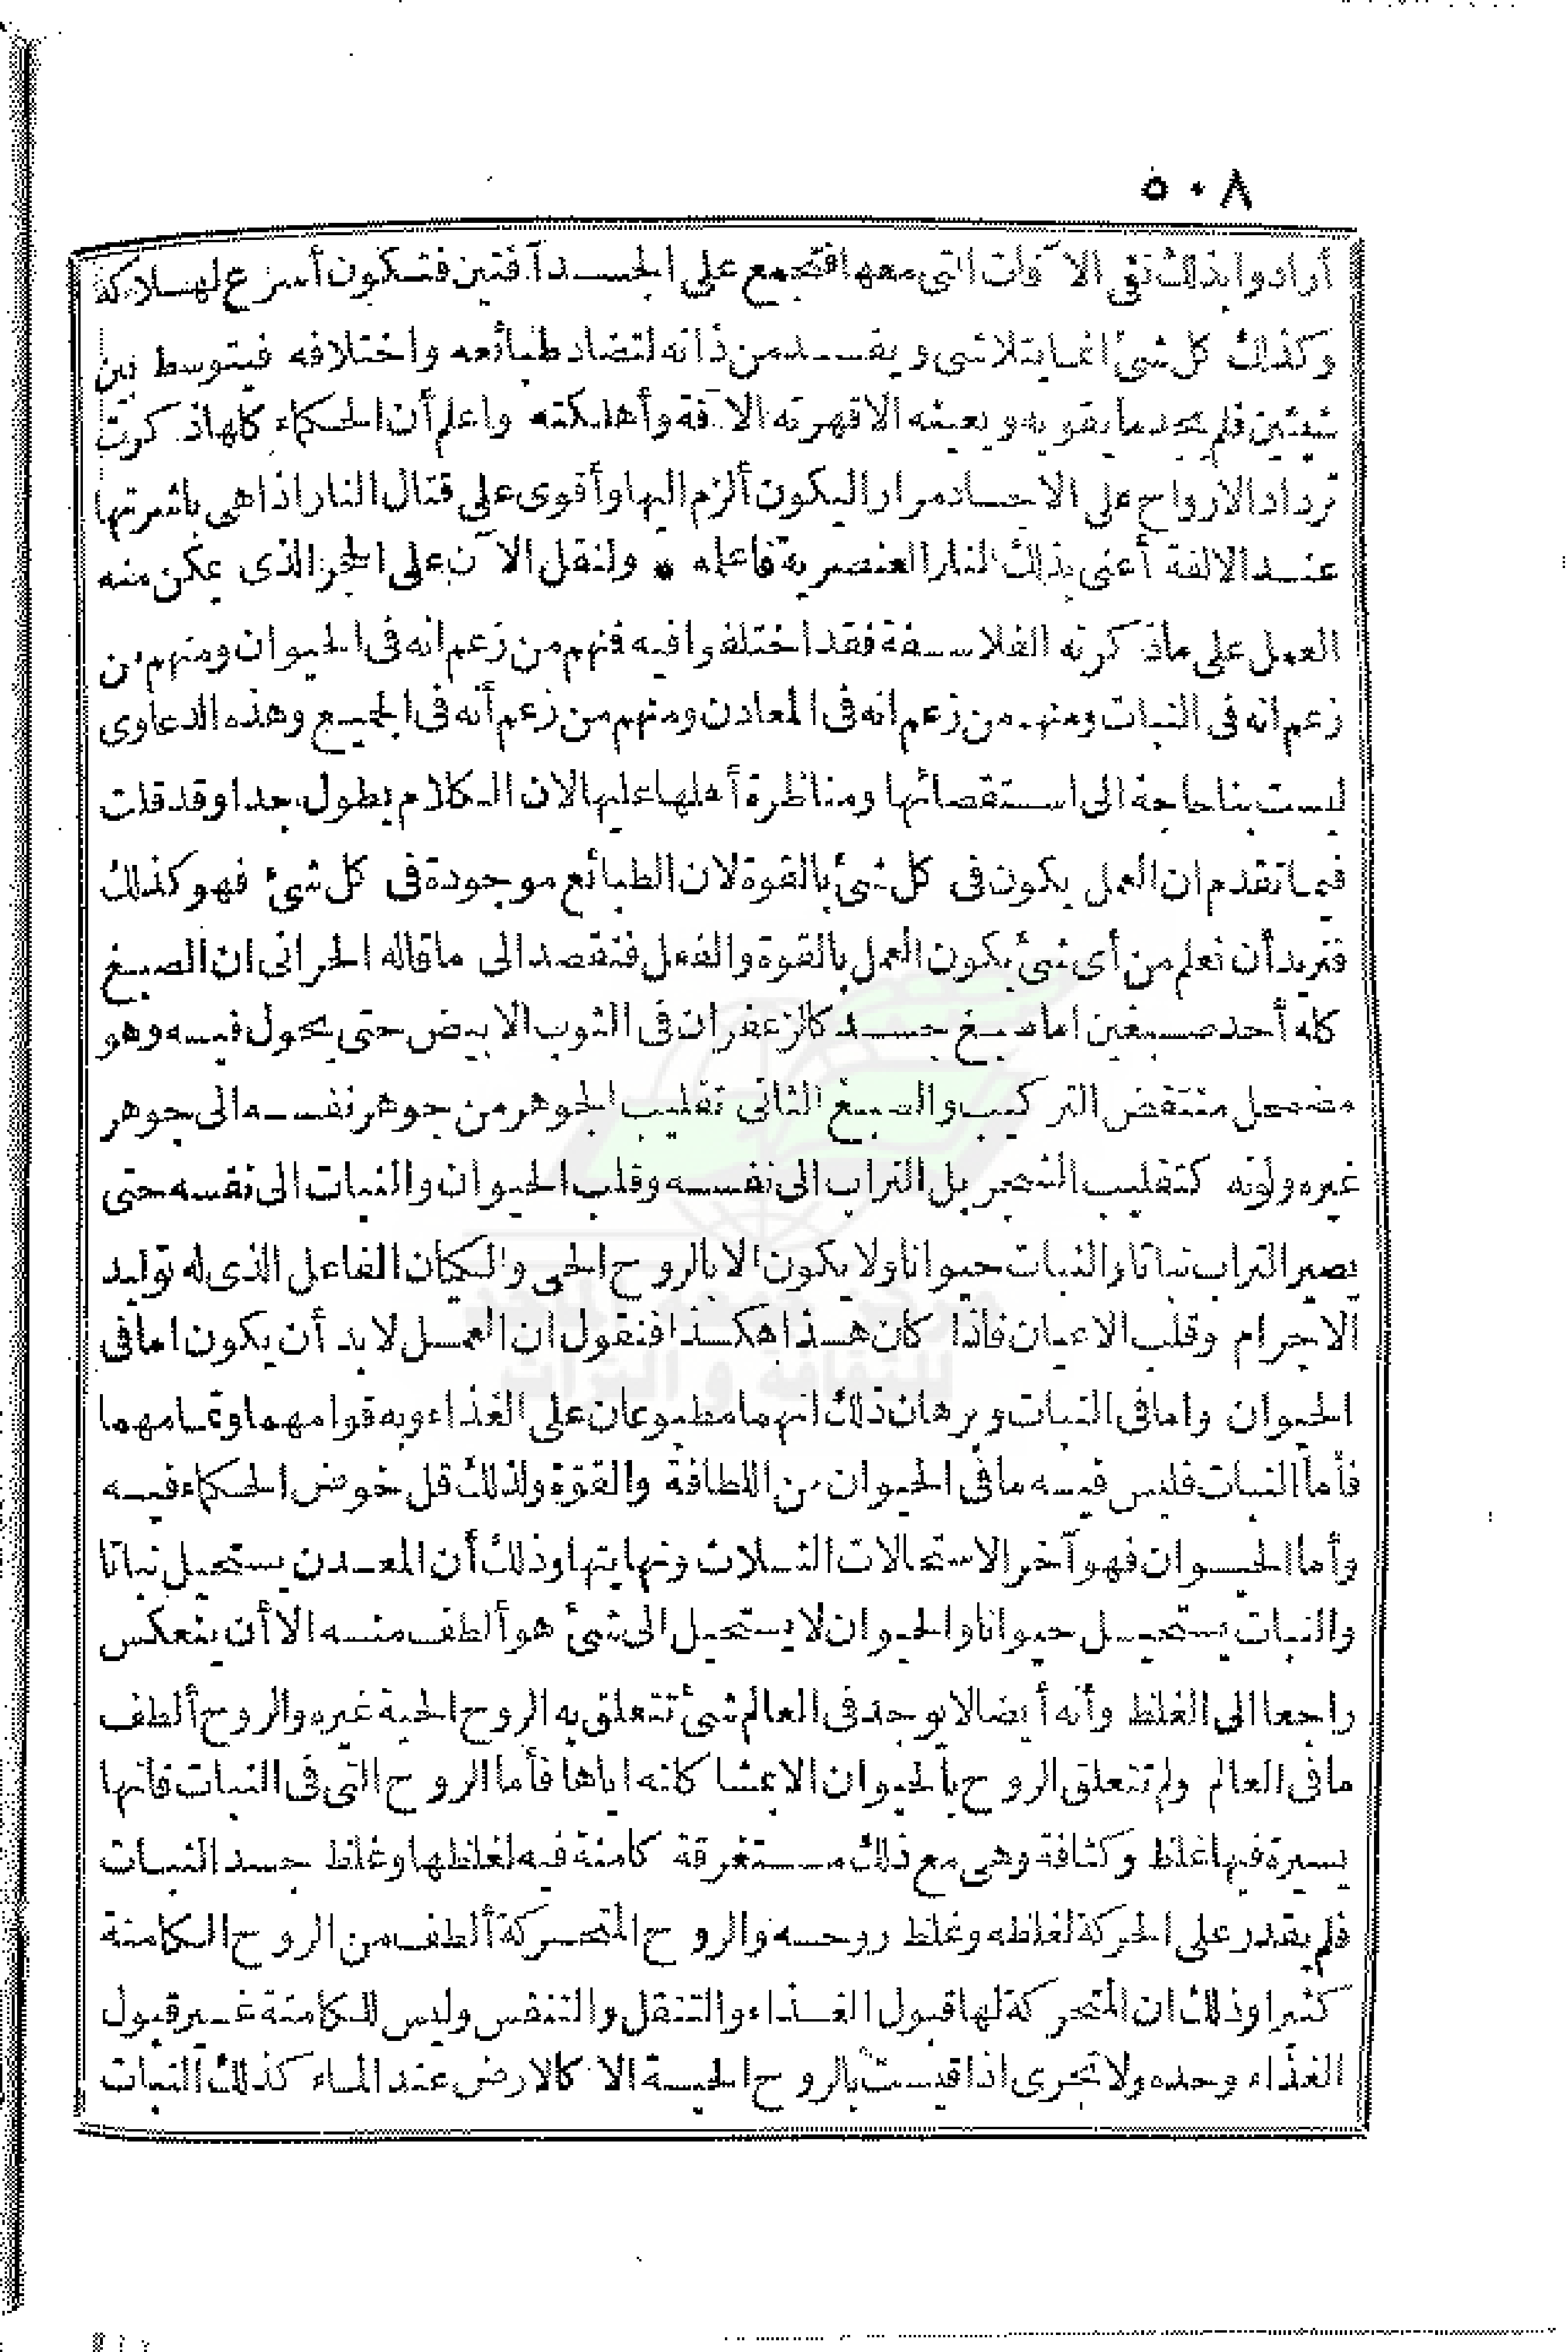 ٥٠٨
أرادوا بذلك نفي الآفات التي معها فتجمع على الجسد آفتين فتكون أسرع لهلاكه
وكذلك كل شئ انما يتلاشى ويفسد من ذاته لتضاد طبائعه واختلافه فيتوسط بين
شيئين فلم يجد ما يقويه ويعينه الا قهرته الآفة وأهلكته واعلم أن الحكماء كلها ذكرت
ترداد الارواح على الاجساد مرارا ليكون ألزم اليها وأقوى على قتال النار اذا هي باشرتها
عند الالفة أعني بذلك النار العنصرية فاعلمه * ولنقل الآن على الحجر الذى يمكن منه
العمل على ماذكرته الفلاسفة فقد اختلفوا فيه فمنهم من زعم انه فى الحيوان ومنهم من
زعم انه فى النبات ومنهم من زعم انه فى المعادن ومنهم من زعم أنه فى الجميع وهذه الدعاوى
ليست بنا حاجة الى استقصائها ومناظرة أهلها عليها لان الكلام يطول جدا وقد قلت
فيما تقدم ان العمل يكون فى كل شئ بالقوة لان الطبائع موجودة فى كل شئ فهو كذلك
فنريد أن نعلم من أى شئ يكون العمل بالقوة والفعل فنقصد الى ماقاله الحرانى ان الصبغ
كله أحد صبغين اما صبغ جسد كالزعفران فى الثوب الابيض حتى يحول فيه وهو
مضمحل منتقض التركيب والصبغ الثانى تقليب الجوهر من جوهر نفسه الى جوهر
غيره ولونه كتقليب الشجر بل التراب الى نفسه وقلب الحيوان والنبات الى نفسه حتى
يصير التراب نباتا والنبات حيوانا ولا يكون الا بالروح الحى والكيان الفاعل الذى له توليد
الاجرام وقلب الاعيان فاذا كان هذا هكذا فنقول ان العمل لا بد أن يكون اما فى
الحيوان واما فى النبات وبرهان ذلك انهما مطبوعان على الغذاء وبه قوامهما وتمامهما
فأما النبات فليس فيه ما فى الحيوان من اللطافة والقوة ولذلك قل خوض الحكماء فيه
وأما الحيوان فهو آخر الاستحالات الثلاث ونهايتها وذلك أن المعدن يستحيل نباتا
والنبات يستحيل حيوانا والحيوان لا يستحيل الى شئ هو ألطف منه الا أن ينعكس
راجعا الى الغلظ وأنه أيضا لا يوجد فى العالم شئ تتعلق به الروح الحية غيره والروح ألطف
ما فى العالم ولم تتعلق الروح بالحيوان الا بمشاكلته اياها فأما الروح التى فى النبات فانها
يسيرة فيها غلظ وكثافة وهى مع ذلك مستغرقة كامنة فيه لغلظها وغلظ جسد النبات
فلم يقدر على الحركة لغلظه وغلظ روحه والروح المتحركة ألطف من الروح الكامنة
كثيرا وذلك ان المتحركة لها قبول الغذاء والتنقل والتنفس وليس للكامنة غير قبول
الغذاء وحده ولا تجرى اذا قيست بالروح الحية الا كالارض عند الماء كذلك النبات
مركز جمعة الماجد
للثقافة و التراث